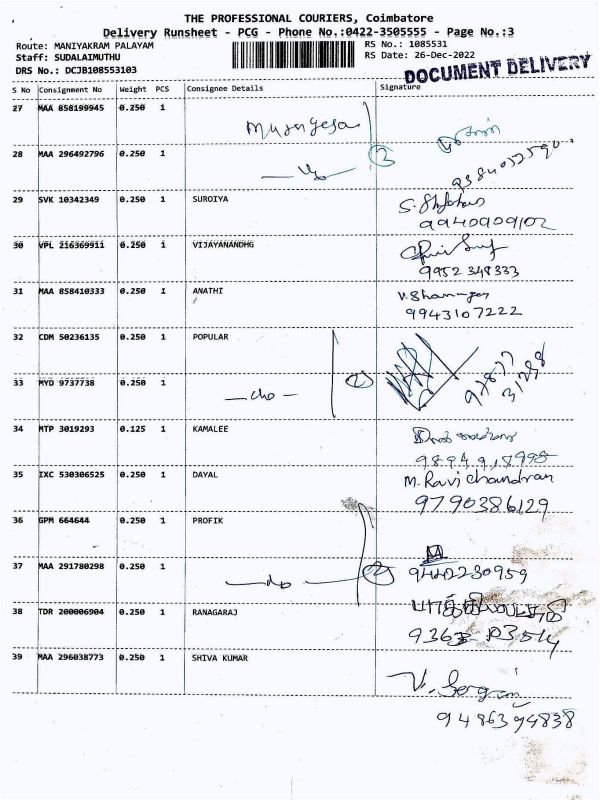 THE PROFESSIONAL COURIERS, Coimbatore
Delivery Runsheet - PCG - Phone No.:0422-3505555 - Page No.:3
Route: MANIYAKRAM PALAYAM RS No.: 1085531
Staff: SUDALAIMUTHU RS Date: 26-Dec-2022
DRS No.: DCJB108553103
DOCUMENT DELIVERY
S No Consignment No Weight PCS Consignee Details Signature
27 MAA 858199945 0.250 1
28 MAA 296492796 0.250 1 2
29 SVK 10342349 0.250 1 SUROIYA
9940909102
30 VPL 216369911 0.250 1 VIJAYANANDHG
9952348333
31 MAA 858410333 0.250 1 ANATHI
9943107222
32 CDM 50236135 0.250 1 POPULAR
33 MYD 9737738 0.250 1
34 MTP 3019293 0.125 1 KAMALEE
35 IXC 530306525 0.250 1 DAYAL M. Ravi chandran
9790386129
36 GPM 664644 0.250 1 PROFIK
37 MAA 291780298 0.250 1 do 2
38 TDR 200006904 0.250 1 RANAGARAJ
39 MAA 296038773 0.250 1 SHIVA KUMAR
9486394838